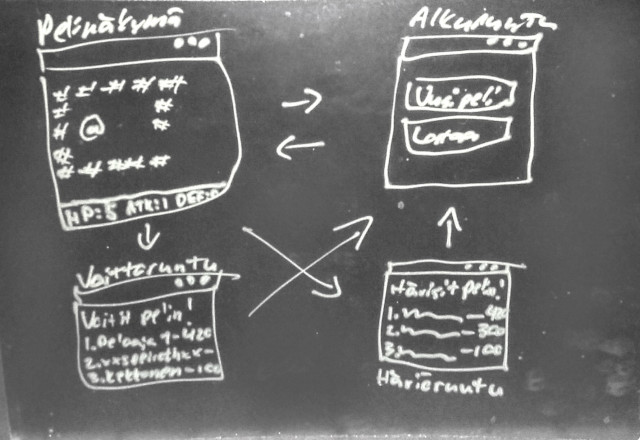 Pelinäkymä
# # # # #
# #
# @ #
#
# # # # #
HP:5 ATK:1 DEF:0
Alkuruutu
Uusi peli
Voittoruutu
Voitit pelin!
1. Pelaaja 1 - 420
3. Kekkonen - 100
Hävisit pelin!
1. - 420
2. - 300
3. - 100
Häviöruutu